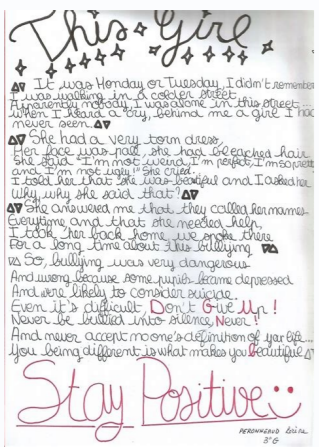 This Girl
It was Monday or Tuesday, I didn't remember
I was walking in a colder street
Apparently nobody, I was alone in this street...
When I heard a cry, behind me a girl I had
never seen.
She had a very torn dress,
Her face was pall, she had bleached hair
She said "I'm not weird, I'm perfect, I'm so pretty
and I'm not ugly!" She cried.
I told her that she was beautiful and I asked her
Why, why she said that?
She answered me that they called her names
everytime and that she needed help,
I took her back home, we spoke there
For a long time about this bullying
So, bullying was very dangerous
And wrong because some pupils became depressed
And were likely to consider suicide.
Even it's difficult, Don't Give Up!
Never be bullied into silence, Never!
And never accept no one's definition of your life...
You being different is what makes you beautiful
Stay Positive
PERONNEAUD
3°G